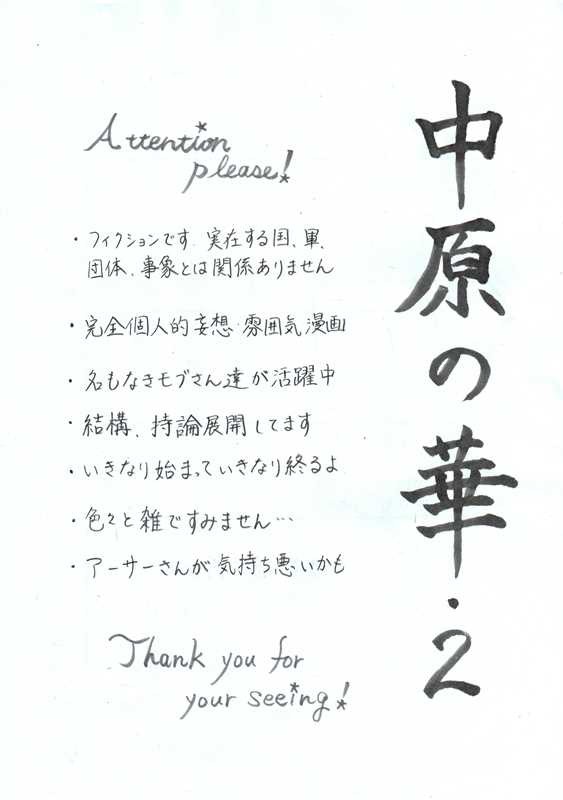 中原の華・2
Attention
please!
・フィクションです. 実在する国、軍、
団体、事象とは関係ありません
・完全個人的妄想・雰囲気漫画
・名もなきモブさん達が活躍中
・結構、持論展開してます
・いきなり始まっていきなり終るよ
・色々と雑ですみません…
・アーサーさんが気持ち悪いかも
Thank you for
your seeing!